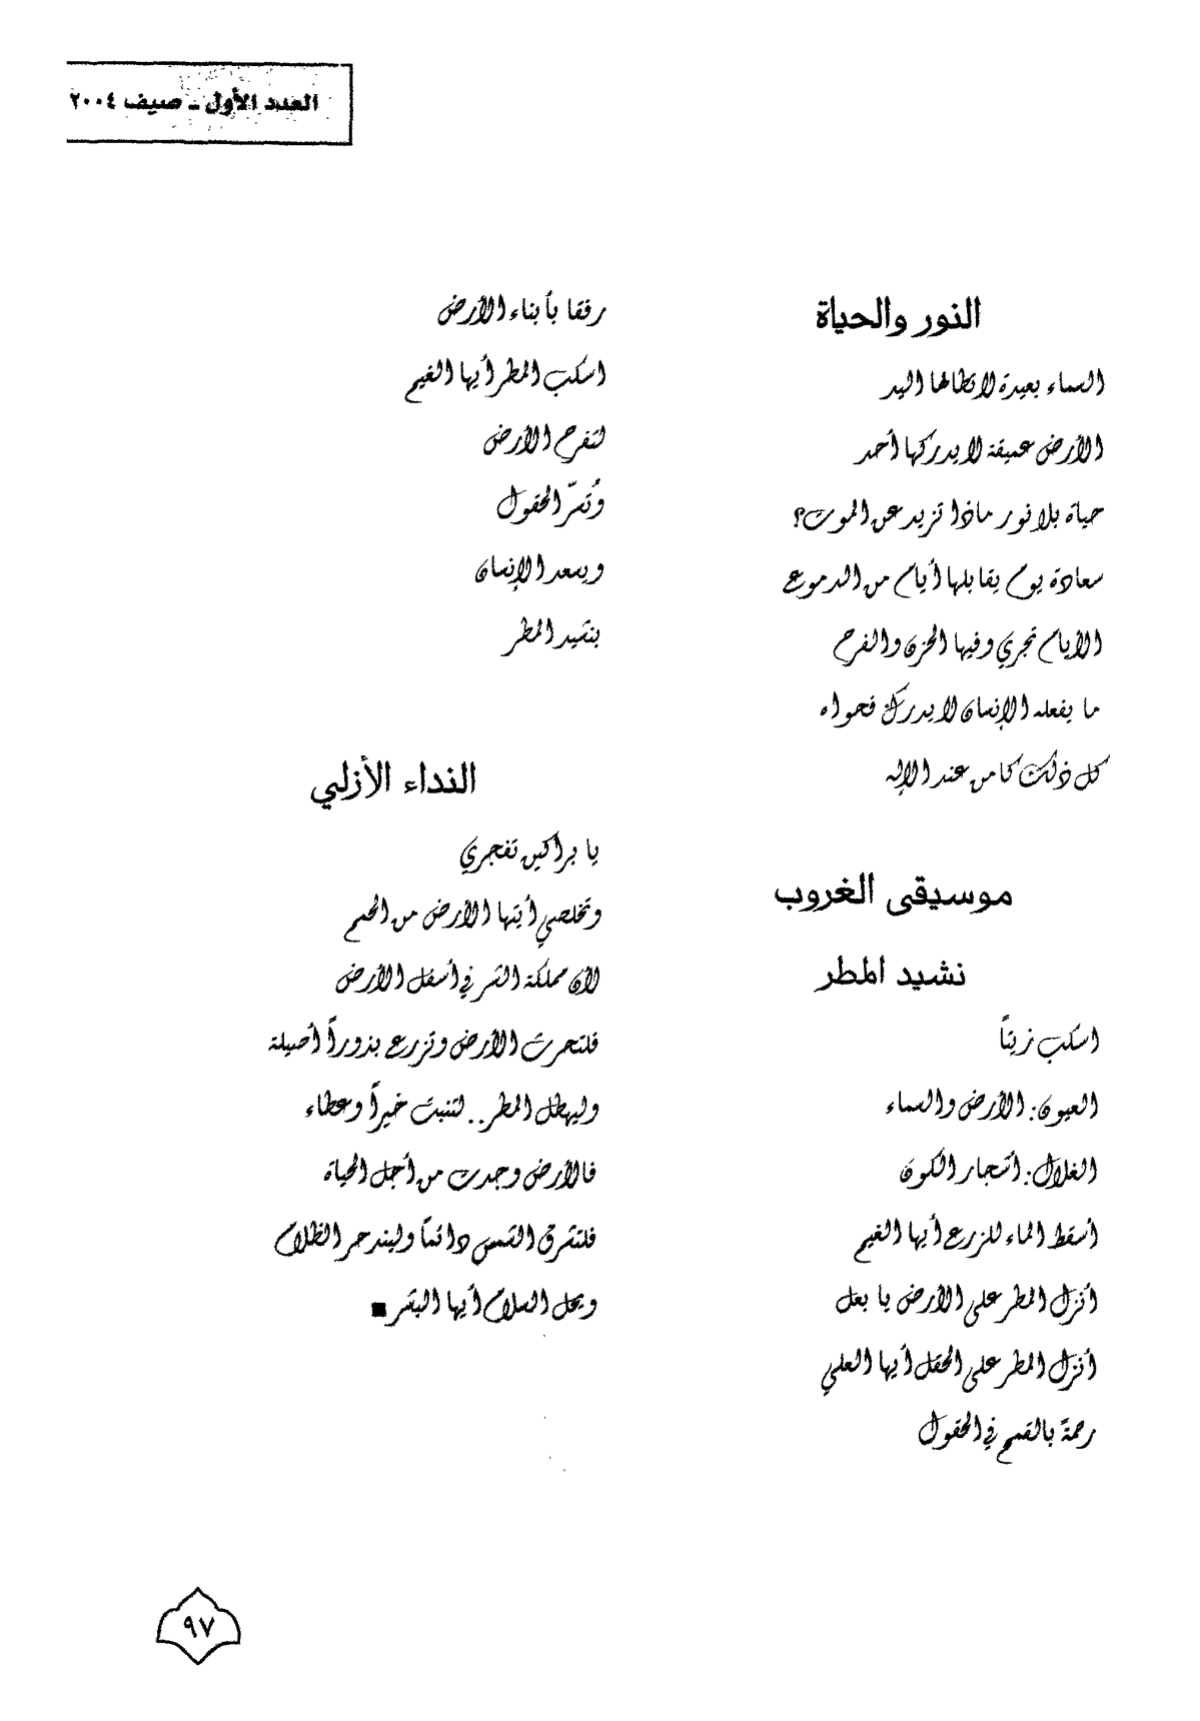 العدد الأول ـ صيف ٢٠٠٤
النور والحياة
السماء بعيدة لا تطالها اليد
الأرض عميقة لا يدركها أحد
حياة بلا نور ماذا تزيد عن الموت؟
سعادة يوم يقابلها أيام من الدموع
الأيام تجري وفيها الحزن والفرح
ما يفعله الإنسان لا يدرك فحواه
كل ذلك كامن عند الإله
موسيقى الغروب
نشيد المطر
اسكب زيتاً
العيون: الأرض والسماء
الغلال: أشجار الكون
أسقط الماء للزرع أيها الغيم
أنزل المطر على الأرض يا بعل
أنزل المطر على الحقل أيها العلي
رحمةً بالقمح في الحقول
رفقا بأبناء الأرض
اسكب المطر أيها الغيم
لتفرح الأرض
وتُسرّ الحقول
ويسعد الإنسان
بنشيد المطر
النداء الأزلي
يا براكين تفجري
وتخلصي أيتها الأرض من الحمم
لأن مملكة الشر في أسفل الأرض
فلتحرث الأرض وتزرع بذوراً أصيلة
وليهطل المطر.. لتنبت خيراً وعطاء
فالأرض وجدت من أجل الحياة
فلتشرق الشمس دائماً وليندحر الظلام
ويحل السلام أيها البشر ■
٩٧